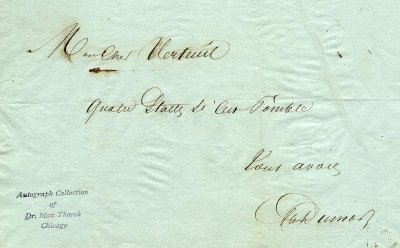 Mon cher Verteuil
Quatre Stalles Si c'est Possible
Tout à vous
Alx Dumas
Autograph Collection
of
Dr. Max Thorek
Chicago